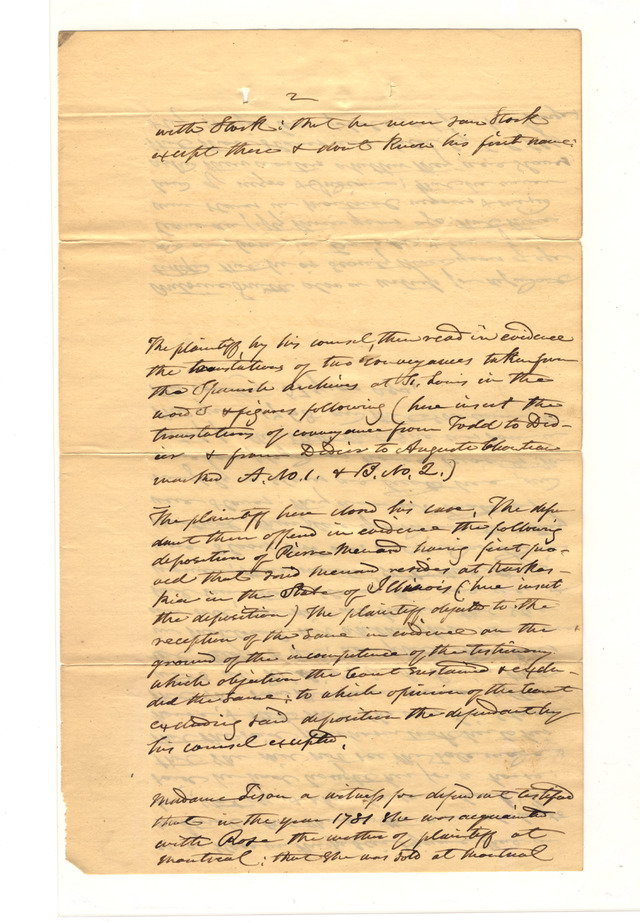 2
with Stork: that he never saw Stork
except there & dont know his first name.
The plaintiff, by his counsel, then read in evidence
the translations of two conveyances taken from
the Spanish archives at St. Louis in the
words & figures following (here insert the
translations of conveyance from Todd to Did-
ier & from Didier to Auguste Chouteau
marked A. No. 1. & B. No. 2.)
The plaintiff here closed his case. The defen-
dant then offered in evidence the following
deposition of Pierre Menard having first pro-
ved that said Menard resides at Kaskas-
kia in the State of Illinois (here insert
the deposition) The plaintiff objected to the
reception of the same in evidence on the
ground of the incompetence of the testimony
which objection the Court sustained & exclu-
ded the same; to which opinion of the Court
excluding said deposition the defendant by
his counsel excepted.
Madame Tison a witness for defendant testified
that in the year 1781 she was acquainted
with Rose the mother of plaintiff at
Montreal; that she was sold at Montreal